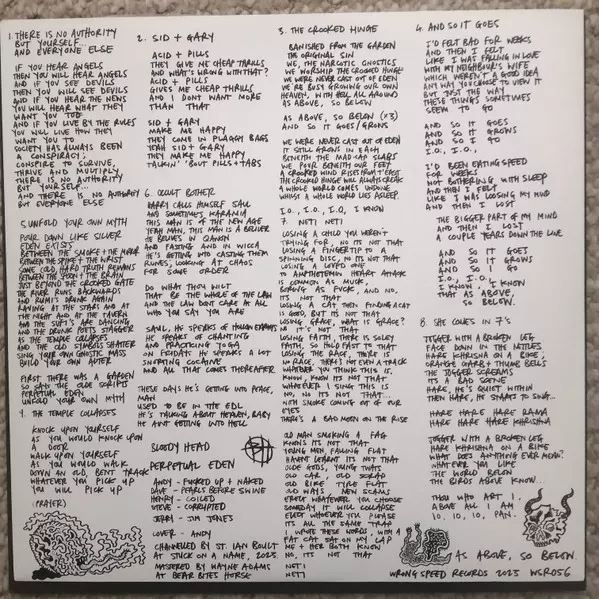 1. THERE IS NO AUTHORITY
BUT YOURSELF...
AND EVERYONE ELSE
IF YOU HEAR ANGELS
THEN YOU WILL HEAR ANGELS
AND IF YOU SEE DEVILS
THEN YOU WILL SEE DEVILS
AND IF YOU HEAR THE NEWS
YOU WILL HEAR WHAT THEY
WANT YOU TOO
AND IF YOU LIVE BY THE RULES
YOU WILL LIVE HOW THEY
WANT YOU TO
SOCIETY HAS ALWAYS BEEN
A CONSPIRACY,
CONSPIRE TO SURVIVE,
THRIVE AND MULTIPLY
THERE IS NO AUTHORITY
BUT YOURSELF...
AND THERE IS NO AUTHORITY
BUT EVERYONE ELSE
5 UNFOLD YOUR OWN MYTH
POUR DOWN LIKE SILVER
EDEN EXISTS
BETWEEN THE SMOKE + THE MIRROR
BETWEEN THE SPIT + THE WRIST
SOME COLD HARD TRUTH REMAINS
BETWEEN THE SPOON + THE BRAIN
JUST BEYOND THE CROOKED GATE
THE RIVER RUNS BACKWARDS
AND RUMI'S DRUNK AGAIN
RAVING AT THE STARS AND AT
THE NIGHT AND AT THE TAVERN
AND THE SUFI'S ARE DANCING
AND THE DRUNK POETS STAGGER
AS THE TEMPLE COLLAPSES
AND THE OLD SYMBOLS SHATTER
SING YOUR OWN GNOSTIC MASS
BUILD YOUR OWN ALTER
FIRST THERE WAS A GARDEN
SO SAY THE OLDE SCRIPTS
PERPETUAL EDEN
UNFOLD YOUR OWN MYTH
9. THE TEMPLE COLLAPSES
KNOCK UPON YOURSELF
AS YOU WOULD KNOCK UPON
A DOOR
WALK UPON YOURSELF
AS YOU WOULD WALK
DOWN AN OLD, BENT TRACK
WHATEVER YOU PICK UP
YOU WILL PICK UP
(PRAYER)
2. SID + GARY
ACID + PILLS
THEY GIVE ME CHEAP THRILLS
AND WHAT'S WRONG WITH THAT?
ACID + PILLS
GIVES ME CHEAP THRILLS
AND I DONT WANT MORE
THAN THAT
SID + GARY
MAKE ME HAPPY
THEY COME IN PLAGGY BAGS
YEAH SID + GARY
THEY MAKE ME HAPPY
TALKIN' 'BOUT PILLS + TABS
6. OCCULT BOTHER
HARRY CALLS HIMSELF SAUL
AND SOMETIMES, KARANJA
THIS MAN IS OF THE NEW AGE
YEAH MAN, THIS MAN IS A BELIEVER
HE BELIEVES IN
AND FASTING AND IN WICCA
HE'S GETTING INTO CASTING THEM
RUNES, LOOKING AT CHAOS
FOR SOME ORDER
DO WHAT THOU WILT
THAT BE THE WHOLE OF THE LAW
AND THE LAW DONT CARE AT ALL
WHO YOU SAY YOU ARE
SAUL, HE SPEAKS OF
HE SPEAKS OF CHANTING
AND PRACTICING YOGA
ON FRIDAYS HE SPEAKS A LOT
SNORTING COCAINE
AND ALL THAT COMES THEREAFTER
THESE DAYS HE'S GETTING INTO PEACE,
MAN
USED TO BE IN THE EDL
HE'S TALKING ABOUT HEAVEN, BABY
HE AIN'T GETTING INTO HELL
BLOODY HEAD
PERPETUAL EDEN
ANDY - FUCKED UP + NAKED
DAVE - PEARLS BEFORE SWINE
HENRY - COILED
STEVE - CORRUPTED
JERRY - JIM JONES
COVER - ANDY
CHANNELLED BY ST. IAN BOULT
AT STUCK ON A NAME, 2023
MASTERED BY WAYNE ADAMS
AT BEAR BITES HORSE
3. THE CROOKED HINGE
BANISHED FROM THE GARDEN
THE ORIGINAL SIN
WE, THE NARCOTIC GNOSTICS
WE WORSHIP THE CROOKED HINGE
WE WERE NEVER CAST OUT OF EDEN
WE'RE BUSY GROWING OUR OWN
HEAVEN, WITH HELL ALL AROUND
AS ABOVE, SO BELOW
AS ABOVE, SO BELOW (X3)
AND SO IT GOES/GROWS
WE WERE NEVER CAST OUT OF EDEN
IT STILL GROWS IN EACH
BENEATH THE MAD-CAP SCABS
WE POUR BENEATH OUR FEET
A CROOKED WIND RISES FROM THE EAST
THE CROOKED HINGE WILL ALWAYS CREAK
A WHOLE WORLD COMES UNDONE
WHILST A WHOLE WORLD LIES ASLEEP.
I.O, I.O, I.O, I KNOW
7. NETI NETI
LOSING A CHILD YOU WEREN'T
TRYING FOR, NO ITS NOT THAT
LOSING A FINGERTIP TO A
SPINNING DISC, NO ITS NOT THAT
LOSING A LOVED ONE
TO AN HEART ATTACK
IS COMMON AS MUCK,
BORING AS FUCK, AND NO,
ITS NOT THAT
LOSING A CAT THEN FINDING A CAT
IS GOOD, BUT ITS NOT THAT
LOSING GRACE, WHAT IS GRACE?
NO IT'S NOT THAT
LOSING FAITH, THERE IS SOLEY
FAITH, SO HOLD FAST TO THAT
LOSING THE RACE, THERE IS
NO RACE, THERE'S NOT EVEN A TRACK
WHATEVER YOU THINK THIS IS,
KNOW, KNOW ITS NOT THAT
WHATEVER I SING THIS IS
NO, NO ITS NOT THAT...
WITH SMOKE COMING OUT OF OUR
EYES
THERE'S A BAD MOON ON THE RISE
OLD MAN SMOKING A FAG
KNOWS ITS NOT THAT
YOUNG MEN, FALLING FLAT
HAVENT LEARNT ITS NOT THAT
OLDE GODS, YOUNG TWATS
OLD CAR, OLD SCRAP
OLD BIKE TYRE FLAT
OLD WAYS NEW SCAMS
ERECT WHATEVER YOU CHOOSE
SOMEDAY IT WILL COLLAPSE
ERECT WHOEVER YOU PLEASE
IT'S ALL THE SAME TRAP
I WROTE THESE WORDS, WITH A
FAT CAT SAT ON MY LAP
ME + HER BOTH KNOW
NO, ITS NOT THAT
NETI
NETI
4. AND SO IT GOES
I'D FELT BAD FOR WEEKS
AND THEN I FELT
LIKE I WAS FALLING IN LOVE
WITH MY NEIGHBOUR'S WIFE
WHICH WEREN'T A GOOD IDEA
ANY WAY YOU CHOOSE TO VIEW IT
BUT JUST THE WAY
THESE THINGS SOMETIMES
SEEM TO GO
AND SO IT GOES
AND SO IT GROWS
AND SO I GO
I.O, I.O,
I'D BEEN EATING SPEED
FOR WEEKS
NOT BOTHERING WITH SLEEP
AND THEN I FELT
LIKE I WAS LOOSING MY MIND
AND THEN I LOST
THE BIGGER PART OF MY MIND
AND THEN I LOST
A COUPLE YEARS DOWN THE LINE
AND SO IT GOES
AND SO IT GROWS
AND SO I GO
I.O, I.O,
I KNOW, I KNOW
THAT AS ABOVE,
SO BELOW.
8. SHE COMES IN 7'S
JOGGER WITH A BROKEN LEG
FACE DOWN IN THE NETTLES
HARE KHRISHNA ON A BIKE,
ORANGE GARB + THUMB BELLS
THE JOGGER SCREAMS
ITS A BAD SCENE
HARE, HE'S QUIET WITHIN
THEN HARE, HE STARTS TO SING...
HARE HARE HARE RAMA
HARE HARE HARE KHRISHNA
JOGGER WITH A BROKEN LEG
HARE KHRISHNA ON A BIKE
WHAT DOES ANYTHING EVER MEAN?
WHATEVER YOU LIKE
THE WORLD BELOW
THE BIRDS ABOVE KNOW...
THOU WHO ART I.
ABOVE ALL I AM
IO, IO, IO, PAN.
AS ABOVE, SO BELOW
WRONG SPEED RECORDS 2023 WSR056